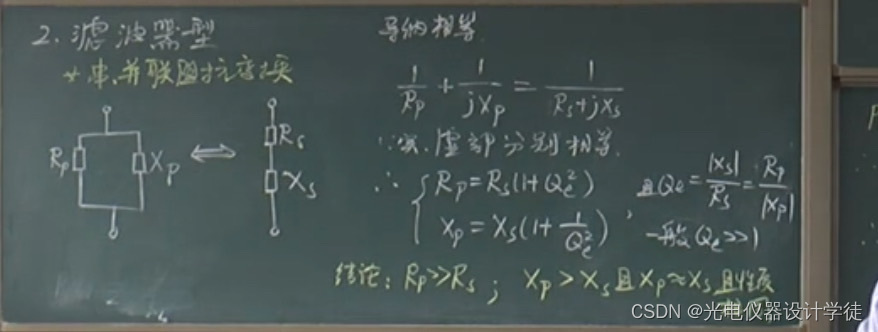 2. 滤波器型
* 串、并联阻抗变换
Rp Xp ⇔ Rs
Xs
导纳相等.
1/Rp + 1/jXp = 1/(Rs+jXs)
∵实、虚部分别相等.
∴ { Rp=Rs(1+Qe²)
Xp=Xs(1+1/Qe²) ,
且Qe=|Xs|/Rs=Rp/|Xp|
一般Qe>>1
结论: Rp>>Rs ; Xp>Xs且Xp≈Xs且性质
CSDN @光电仪器设计学徒